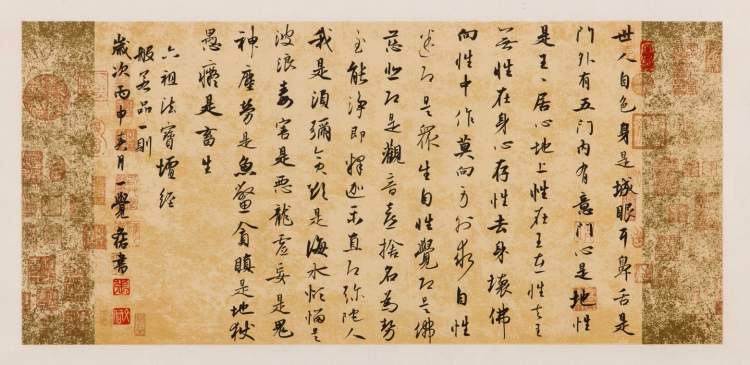 世人自色身是城眼耳鼻舌是
門外有五門内有意門心是地性
是王、居心地上性在王在性去王
無性在身心存性去身壞佛
向性中作莫向身外求自性
迷即是衆生自性覺即是佛
慈悲即是觀音喜捨名為勢
至能淨即釋迦平直即弥陀人
我是須彌貪欲是海水煩惱是
波浪毒害是惡龍虛妄是鬼
神塵勞是魚鱉貪瞋是地獄
愚癡是畜生
六祖法寶壇經
般若品一則
歲次丙申春月一覺書